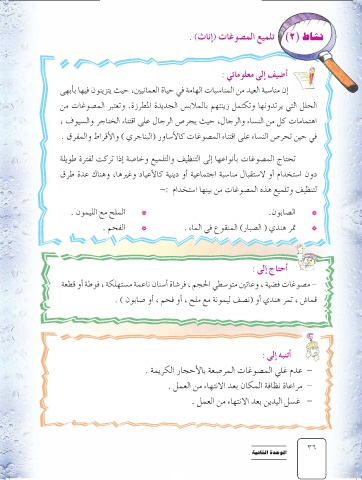 نشاط (٢) تلميع المصوغات (إناث) .
أضيف إلى معلوماتي :
إن مناسبة العيد من المناسبات الهامة في حياة العمانيين، حيث يتزينون فيها بأبهى
الحلل التي يرتدونها وتكتمل زينتهم بالملابس الجديدة المطرزة. وتعتبر المصوغات من
اهتمامات كل من النساء والرجال، حيث يحرص الرجال على اقتناء الخناجر والسيوف ،
في حين تحرص النساء على اقتناء المصوغات كالأساور (البناجري) والأقراط والمفرق .
تحتاج المصوغات بأنواعها إلى التنظيف والتلميع وخاصة إذا تركت لفترة طويلة
دون استخدام أو لاستقبال مناسبة اجتماعية أو دينية كالأعياد وغيرها، وهناك عدة طرق
لتنظيف وتلميع هذه المصوغات من بينها استخدام :-
* الصابون. * الملح مع الليمون .
* تمر هندي (الصبار) المنقوع في الماء . * الفحم .
أحتاج إلى :
- مصوغات فضية ، وعائين متوسطي الحجم ، فرشاة أسنان ناعمة مستهلكة ، فوطة أو قطعة
قماش ، تمر هندي أو (نصف ليمونة مع ملح ، أو فحم ، أو صابون ) .
أنتبه إلى :
- عدم غلي المصوغات المرصعة بالأحجار الكريمة .
- مراعاة نظافة المكان بعد الانتهاء من العمل .
- غسل اليدين بعد الانتهاء من العمل .
٣٦ الوحدة الثانية